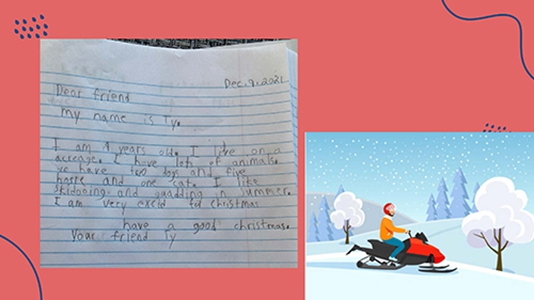 Dec. 9. 2021
Dear friend
my name is Ty.
I am 9 years old. I live on a
acreage. I have lots of animals.
we have two dogs and five
horss and one cat. I like
skidooing and quadding in summer.
I am very excid for christmas
have a good christmas.
Your friend Ty